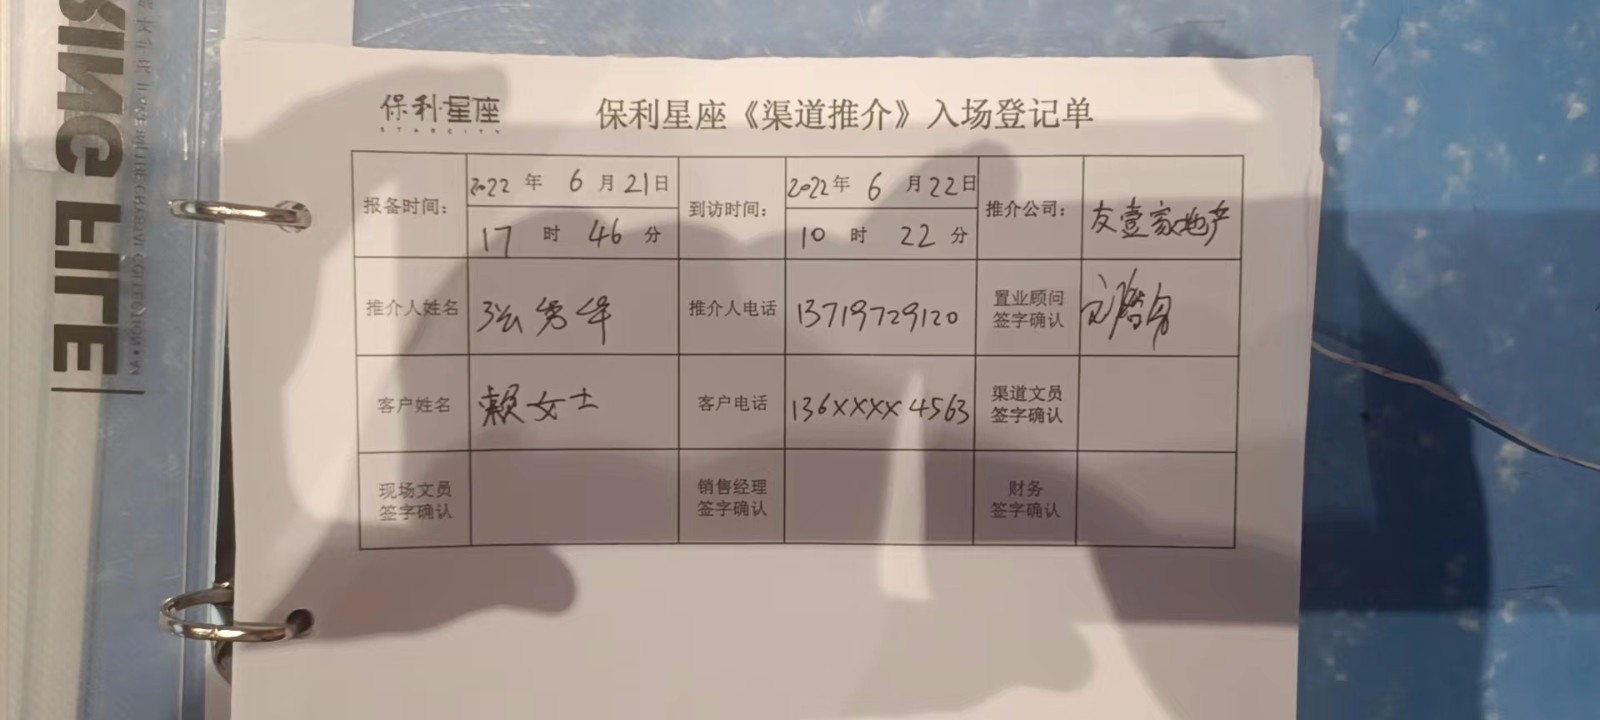 保利星座
STARCITY
保利星座《渠道推介》入场登记单
报备时间: 2022 年 6 月 21 日 17 时 46 分
到访时间: 2022 年 6 月 22 日 10 时 22 分
推介公司: 友壹家地产
推介人姓名 张秀华
推介人电话 13719729120
置业顾问
签字确认
客户姓名 赖女士
客户电话 136XXXX4563
渠道文员
签字确认
现场文员
签字确认
销售经理
签字确认
财务
签字确认
KING LIFE